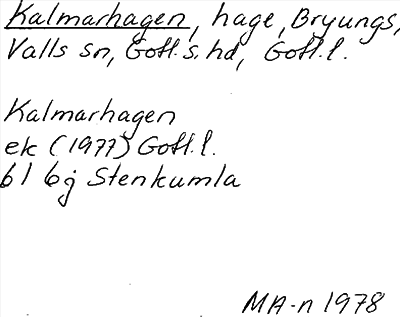 Kalmarhagen, hage, Bryungs,
Valls sn, Gotl. s. hd, Gotl. l.
Kalmarhagen
ek (1977) Gotl. l.
6 I 6j Stenkumla
MA-n 1978